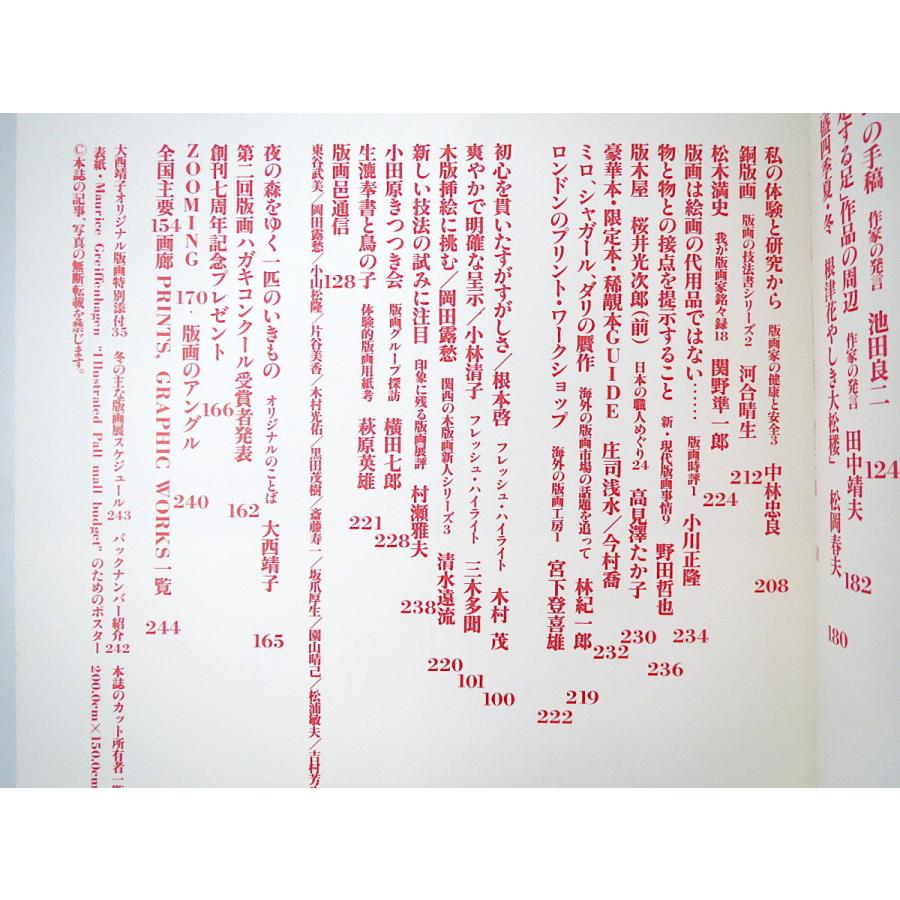 の手稿 作家の発言 池田良二 124
定する足」作品の周辺 作家の発言 田中靖夫 182
盛四季夏・冬 根津花やしき大松楼」 松岡春夫 180
私の体験と研究から 版画家の健康と安全3 中林忠良 208
銅版画 版画の技法書シリーズ2 河合晴生 212
松木満史 我が版画家銘々録18 関野準一郎 224
版画は絵画の代用品ではない…… 版画時評1 小川正隆 234
物と物との接点を提示すること 新・現代版画事情9 野田哲也 236
版木屋 桜井光次郎(前) 日本の職人めぐり24 高見澤たか子 230
豪華本・限定本・稀覯本GUIDE 庄司浅水/今村喬 232
ミロ、シャガール、ダリの贋作 海外の版画市場の話題を追って 林紀一郎 219
ロンドンのプリント・ワークショップ 海外の版画工房1 宮下登喜雄 222
初心を貫いたすがすがしさ/根本啓 フレッシュ・ハイライト 木村茂 100
爽やかで明確な呈示/小林清子 フレッシュ・ハイライト 三木多聞 101
木版挿絵に挑む/岡田露愁 関西の木版画新人シリーズ3 清水遠流 220
新しい技法の試みに注目 印象に残る版画展評 村瀬雅夫 238
小田原きつつき会 版画グループ探訪 横田七郎 228
生漉奉書と鳥の子 体験的版画用紙考 萩原英雄 221
版画邑通信 128
東谷武美/岡田露愁/小山松隆/片谷美香/木村光佑/黒田茂樹/斎藤寿一/坂爪厚生/園山晴己/松浦敏夫/吉村芳
夜の森をゆく一匹のいきもの オリジナルのことば 大西靖子 165
第二回版画ハガキコンクール受賞者発表 162
創刊七周年記念プレゼント 166
ZOOMING 170・版画のアングル 240
全国主要154画廊 PRINTS, GRAPHIC WORKS一覧 244
大西靖子オリジナル版画特別添付35 冬の主な版画展スケジュール243 バックナンバー紹介242 本誌のカット所有者一覧
表紙・Maurice Greiffenhagen “Illustrated Pall mall budget”のためのポスター 200.0cm×150.0cm
©本誌の記事、写真の無断転載を禁じます。